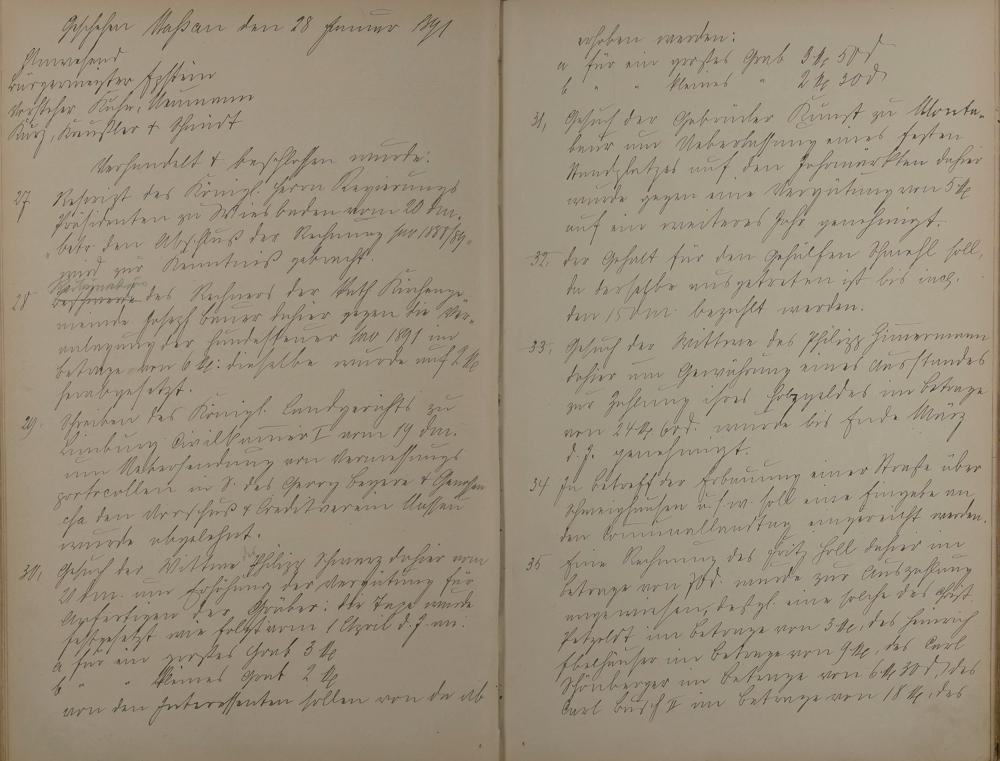 Geschehen Nassau den 28 Januar 1891
Anwesend
Bürgermeister Epstein
Vorsteher Kuhn, Neumann
Kurz, Kreußler & Schmidt
Verhandelt & beschlossen wurde:
27 Rescript des Königl. Herrn Regierungs
Präsidenten zu Wiesbaden vom 20 dm.
betr. den Abschluß der Rechnung pro 1888/89
wird zur Kenntniß gebracht.
28 Beschwerde des Rechners der Kath Kirchenge-
meinde Joseph Bauer dahier gegen die Ver-
anlagung der Hundesteuer pro 1891 im
Betrage von 6 M: dieselbe wurde auf 2 M
herabgesetzt.
29. Schreiben des Königl. Landgerichts zu
Limburg Civilkammer I vom 19 dm.
um Uebersendung von Vermessungs
protocollen in S. des Georg & Genossen
c/a den Vorschuß & Creditverein Nassau
wurde abgelehnt.
30, Gesuch der Wittwe Philipp Schwarz dahier vom
21 dm. um Erhöhung der Vergütung für
Anfertigen der Gräber: die Taxe wurde
festgesetzt wie folgt vom 1 April d. J. an:
a für ein großes Grab 3 M
b " " kleines Grab 2 M
von den Interessenten sollen von da ab
erhoben werden:
a für ein großes Grab 3 M 50 d
b " " kleines " 2 M 30 d
31, Gesuch der Gebrüder Kunst zu Monta-
baur um Ueberlassung eines festen
Standplatzes auf den Jahrmärkten dahier
wurde gegen eine Vergütung von 5 M
auf ein weiteres Jahr genehmigt.
32. Der Gehalt für den Gehülfen Schmehl soll,
da derselbe ausgetreten ist bis incl.
den 15 dm. bezahlt werden.
33, Gesuch der Wittwe des Philipp Zimmermann
dahier um Gewährung eines Ausstandes
zur Zahlung ihres Holzgeldes im Betrage
von 24 M wurde bis Ende März
d. J. genehmigt.
34 In Betreff der Erbauung einer Straße über
Schweighausen u. s. w. soll eine Eingabe an
den Communallandtag eingereicht werden.
35 Eine Rechnung des Fritz Holl dahier im
Betrage von 70 d. wurde zur Auszahlung
angewiesen, desgl. eine solche des Christ
Petzoldt im Betrage von 3 M, des Heinrich
Ebelhäuser im Betrage von 9 M, des Carl
Schönberger im Betrage von 6 M 30 d, des
Carl Busch II im Betrage von 18 M, des